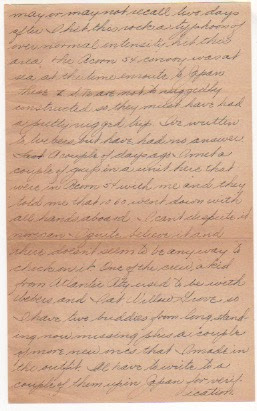 may or may not recall two days
after I hit this rock a typhoon of
over normal intensity hit this
area. The Acorn 54 convoy was at
sea at the time enroute to Japan
These are not ruggedly
constructed so they must have had
a pretty rugged trip. I've written
to but have had no answer
A couple of days ago I met a
couple of guys in a unit here that
were in Acorn 54 with me and they
told me that went down with
all hands aboard. I can't
nor can I quite believe it and
there doesn't seem to be any way to
check on it. One of the crew, a kid
from Atlantic City used to be with
and I at Willow Grove so
I have two buddies from long stand-
ing now missing plus a couple
of more new ones that I made in
the outfit. I'll have to write to a
couple of them up in Japan for verif-
ication